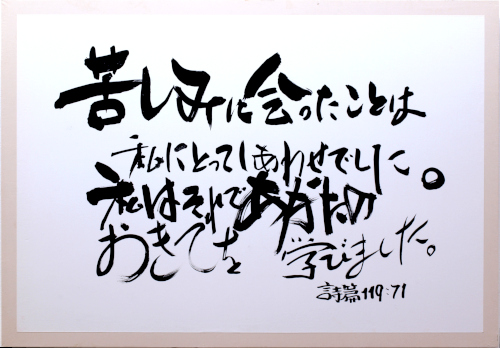 苦しみに会ったことは
私にとってしあわせでした。
私はそれであなたの
おきてを 学びました。
詩篇119:71